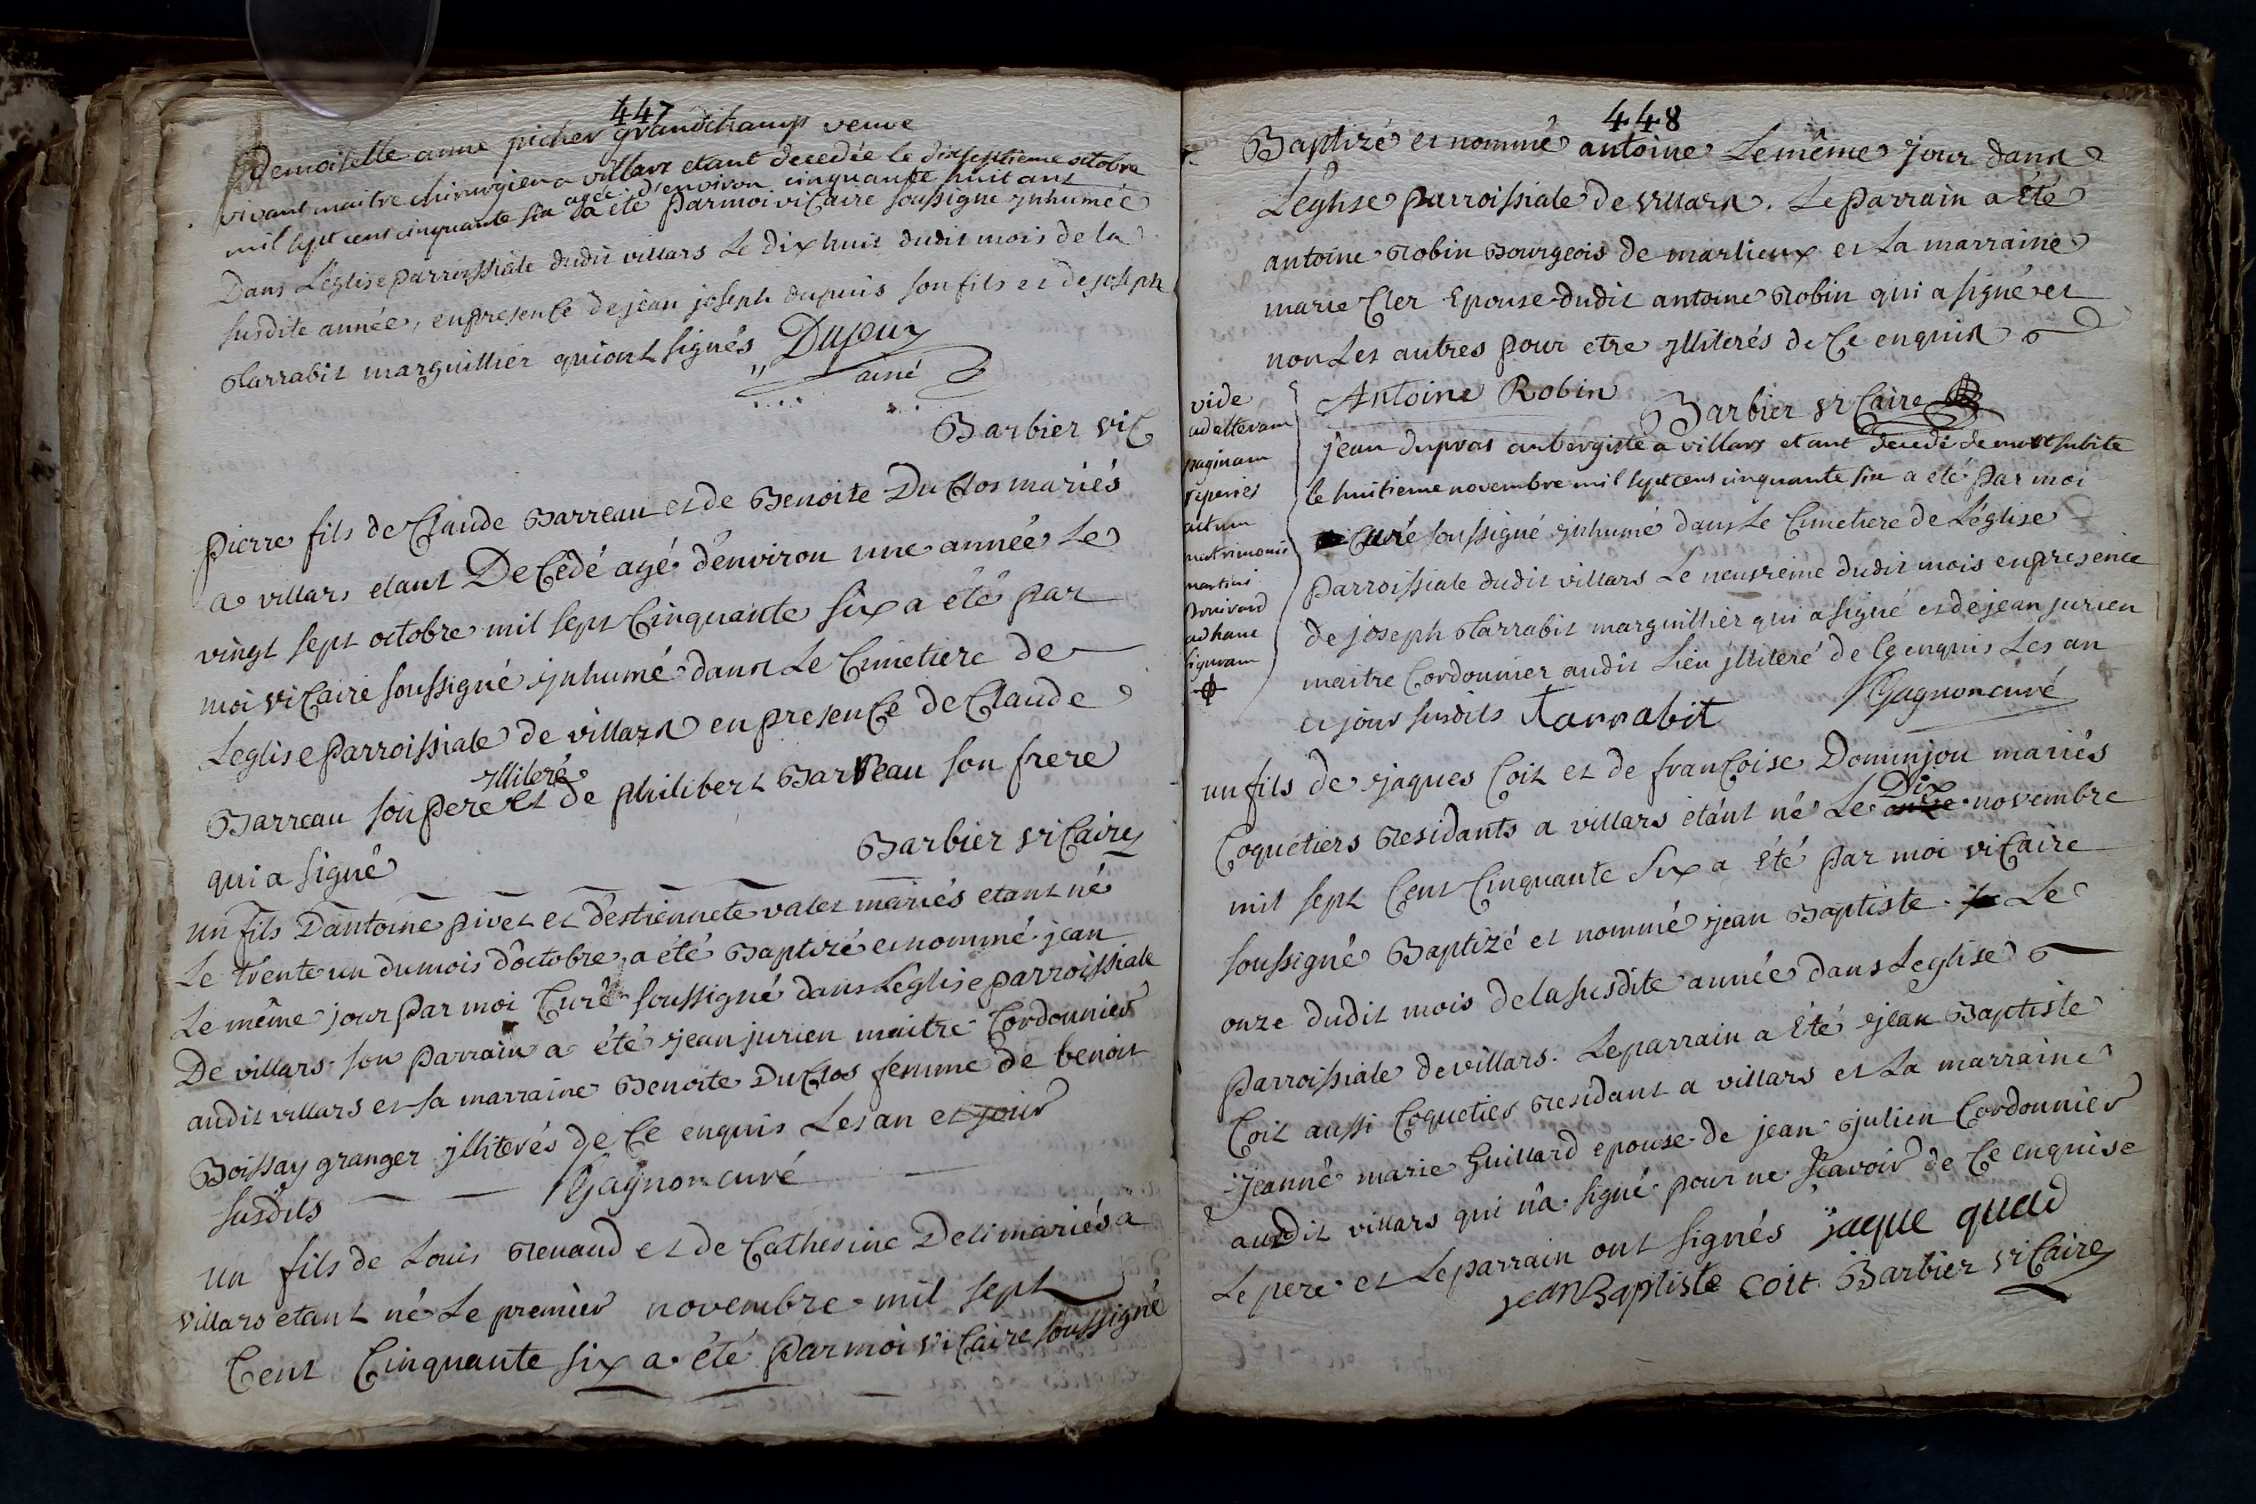 447
Demoiselle anne picher grandchamp veuve
vivant maitre chirurgien a villars etant decedée le dixseptieme octobre
mil sept cent cinquante six agée d'environ cinquante huit ans
a été par moi viCaire soussigné ynhumée
Dans L'église parroissiale dudit villars Le dix huit dudit mois de la
susdite année, en presenCe de jean joseph dupuis son fils et de joseph
Tarrabit marguillier qui ont signés
ainé
Barbier viC
pierre fils de Claude Barreau et de Benoite DuClos mariés
a villars etant DeCédé agé d'environ une année Le
vingt sept octobre mil sept Cinquante six a été par
moi viCaire soussigné ynhumé dans Le Cimetiere de
Leglise parroissiale de villars en presenCe de Claude
Barreau son pere yllileré et de philibert Barreau son frere
qui a signé
Barbier viCaire
un fils D'antoine pivet et d'estiennete valet mariés etant né
Le trente un du mois d'octobre, a été Baptizé et nommé jean
Le même jour par moi Curé soussigné dans L'église parroissiale
De villars. son parrain a été jean jurien maitre Cordonnier
audit villars et sa marraine Benoite DuClos femme de benoit
Boissay granger jlliterés de Ce enquis Les an et jour
susdits
Gagnon curé
un fils de Louis Renaud et de Catherine Deli mariés a
villars etant né Le premier novembre mil sept
Cent Cinquante six a été par moi viCaire soussigné
448
Baptizé et nommé antoine Le même jour dans
L'église parroissiale de villars. Le parrain a été
antoine Robin Bourgeois de marlieux et La marraine
marie Cler Epouse dudit antoine Robin qui a signé et
non Les autres pour etre ylliterés de Ce enquis
Antoine Robin
Barbier viCaire
vide
ad alteram
paginam
reperies
actum
matrimonii
martini
Bonivard
ad hanc
figuram
jean dupras aubergiste a villars etant decedé de mort subite
le huitieme novembre mil sept cens cinquante six a été par moi
Curé soussigné ynhumé dans Le Cimetiere de L'église
parroissiale dudit villars Le neuvieme dudit mois en presence
de joseph Tarrabit marguillier qui a signé et de jean jurien
maitre Cordonnier audit Lieu jlliteré de Ce enquis Les an
et jour susdits Tarrabit
Gagnon curé
un fils de jaques Coit et de françoise Dominjon mariés
Coquetiers Residants a villars étant né Le onze Dix novembre
mil sept Cent Cinquante six a été par moi viCaire
soussigné Baptizé et nommé jean Baptiste Le
onze dudit mois de la susdite année dans Leglise
parroissiale de villars. Le parrain a été jean Baptiste
Coit aussi Coquetier Residant a villars et La marraine
jeanne marie Guillard epouse de jean julien Cordonnier
audit villars qui n'a signé pour ne sçavoir de Ce enquise
Le pere et Le parrain ont signés jaque quad
jean Baptiste coit Barbier viCaire